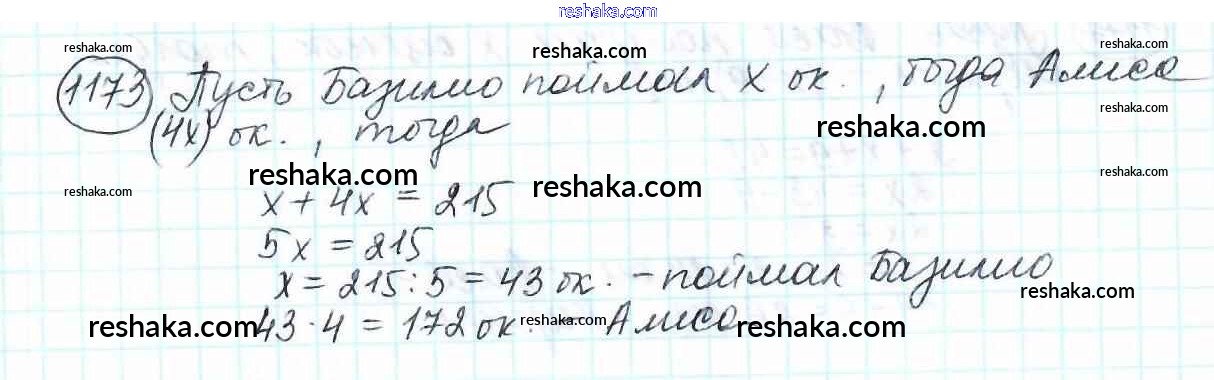 reshaka.com
reshaka.com reshaka.com reshaka.com
1173 Пусть Базилио поймал x ок., тогда Алиса
reshaka.com
(4x) ок., тогда reshaka.com
reshaka.com reshaka.com reshaka.com
reshaka.com
x + 4x = 215
5x = 215
x = 215 : 5 = 43 ок. – поймал Базилио
reshaka.com
reshaka.com 43 · 4 = 172 ок. reshaka.com – Алиса reshaka.com